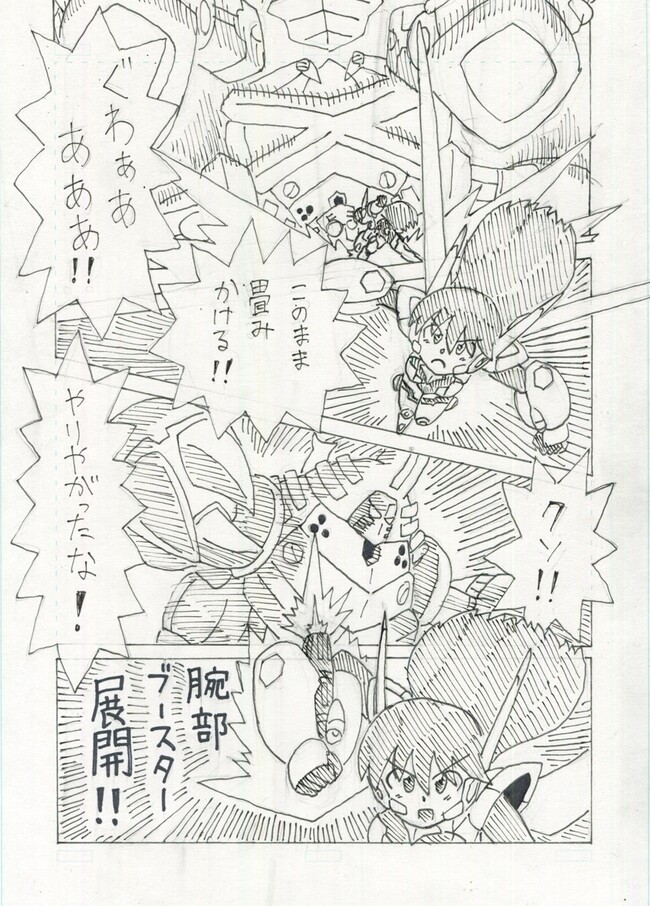 ぐわぁぁ
あぁぁ!!
このまま
畳み
かける!!
クソ!!
やりやがったな!
腕部
ブースター
展開!!